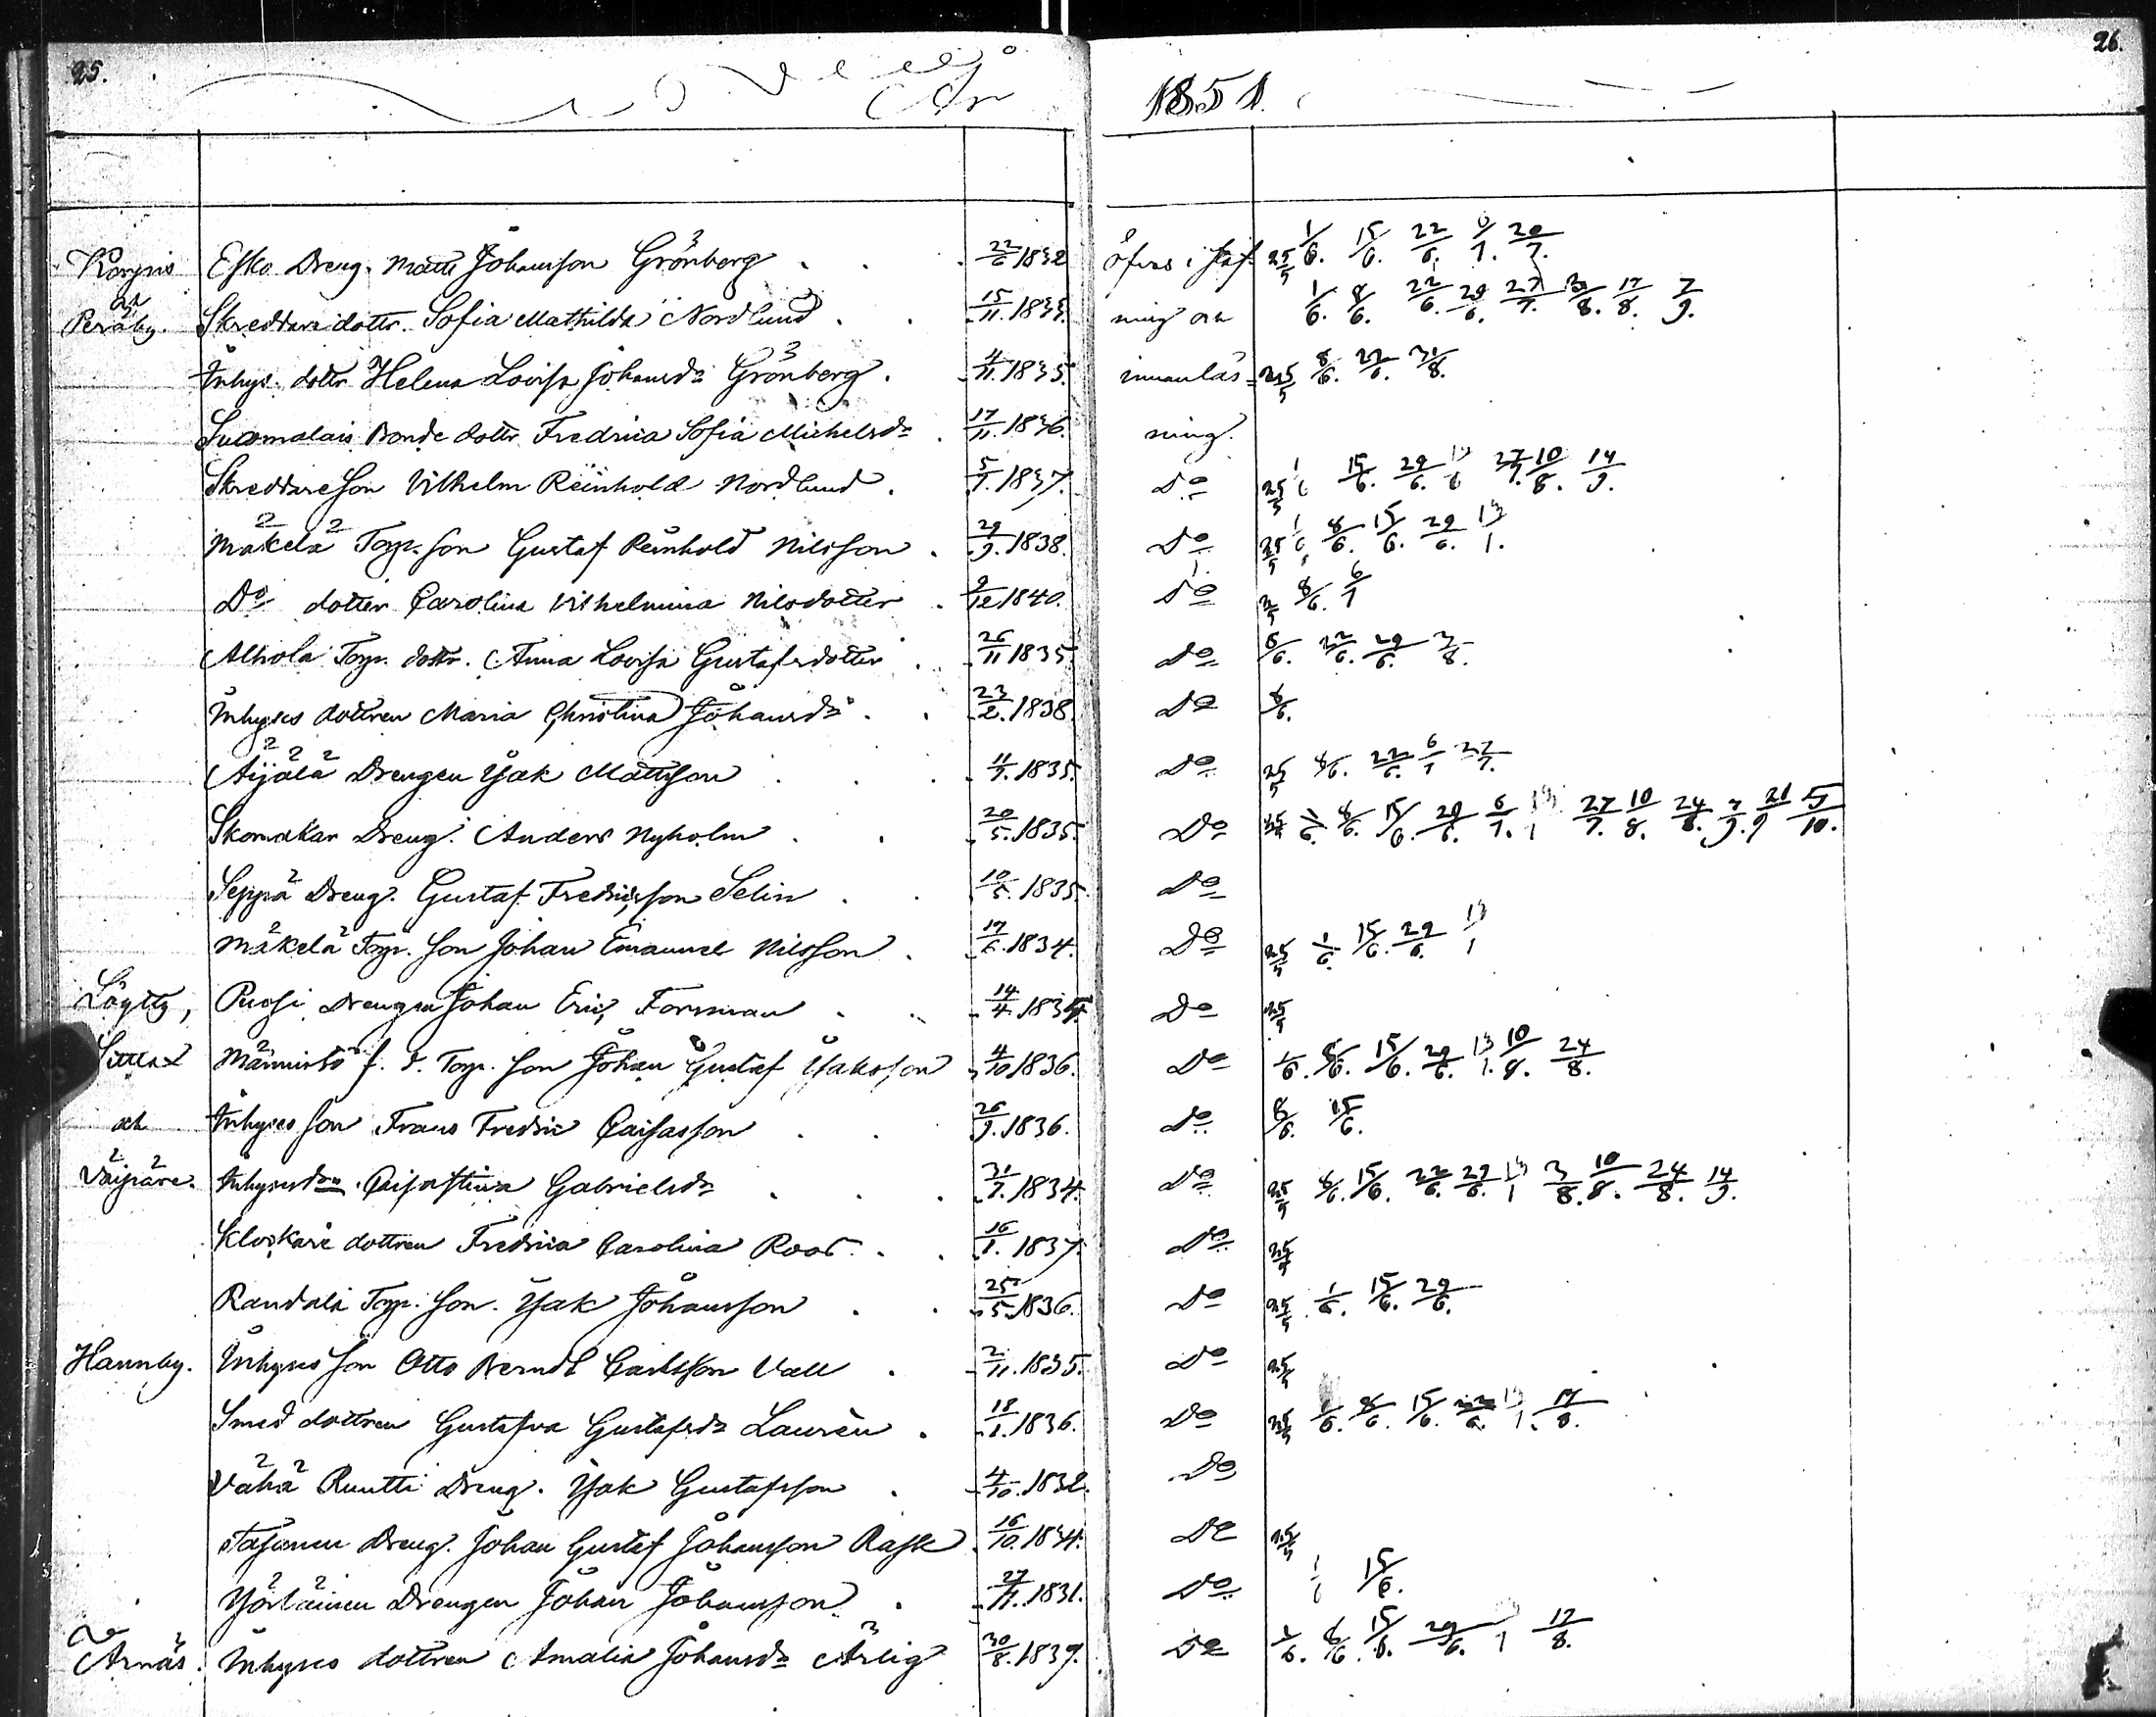 25. 26.
År 1851.
Korpis Esko Dreng. Matts Johansson Grönberg 22/6 1832 öfvas i staf- 25/5 1/6. 15/6. 22/6. 6/7. 20/7.
och Peräby. Skreddare dottr. Sofia Mathilda Nordlund 15/11. 1833. ning och 1/6. 8/6. 22/6. 29/6. 27/7. 3/8. 17/8. 7/9.
Inhys. dottr. Helena Lovisa Johansdr Grönberg. 4/11. 1835. innanläs- 25/5 8/6. 22/6. 31/8.
Suomalais Bonde dottr. Fredrica Sofia Michelsdr 17/11. 1836. ning.
Skreddare Son Vilhelm Reinhold Nordlund. 5/7. 1837. Do 25/5 1/6 15/6. 29/6. 13/6 27/7. 10/8. 14/9.
Mäkelä Torp. Son Gustaf Reinhold Nilsson 29/9. 1838. Do 25/5 1/6 8/6. 15/6. 29/6. 13/7.
Do dotter Carolina Vilhelmina Nilsdotter 9/12 1840. Do 8/6. 6/7
Alhola Torp. dottr. Anna Lovisa Gustafsdotter 26/11 1835 Do 8/6. 22/6. 29/6. 3/8.
Inhyses dottren Maria Christina Johansdr 23/2. 1838. Do 8/6.
Äijälä Drengen Isak Mattsson 11/7. 1835. Do 25/5 8/6. 22/6. 6/7 27/7.
Skomakar Dreng. Anders Nyholm 20/5. 1835. Do 25/5 1/6. 8/6. 15/6. 29/6. 6/7. 13/7 27/7. 10/8. 24/8. 7/9. 21/9 5/10.
Seppä Dreng. Gustaf Fredricsson Selin 10/5. 1835. Do
Mäkelä Torp. Son Johan Emanuel Nilsson 17/6. 1834. Do 25/5 1/6. 15/6. 29/6. 13/7
Löytty, Puosi Drengen Johan Eric Forsman 14/4. 1834 Do 25/5
Männistö f. d. Torp. Son Johan Gustaf Isaksson 4/10 1836. Do 1/6. 8/6. 15/6. 29/6. 13/7. 10/8. 24/8.
och Inhyses Son Frans Fredric Caisasson 26/9. 1836. Do 8/6. 15/6.
Väipäre. Inhysesdr. Caisastina Gabrielsdr 31/7. 1834. Do 25/5 8/6. 15/6. 22/6. 29/6. 13/7 3/8. 10/8. 24/8. 14/9.
Klockare dottren Fredrica Carolina Roos 16/1. 1837. Do 25/5
Randala Torp. Son. Isak Johansson 25/5. 1836. Do 25/5 1/6. 15/6. 29/6.
Hannby. Inhyses Son Otto Berndt Carlsson Vall 2/11. 1835. Do 25/5
Smed dottren Gustafva Gustafsdr Laurén 18/1. 1836. Do 25/5 1/6. 8/6. 15/6. 22/6. 13/7. 17/8.
Vähä Runtti Dreng. Isak Gustafsson 4/10. 1832. Do
Dreng. Johan Gustaf Johansson Rask 16/10. 1834. Do 25/5
Yörläinen Drengen Johan Johansson 27/11. 1831. Do 1/6 15/6.
Arnäs. Inhyses dottren Amalia Johansdr Ärlig 30/8. 1837. Do 1/6. 8/6. 15/6. 29/6. 17/8.